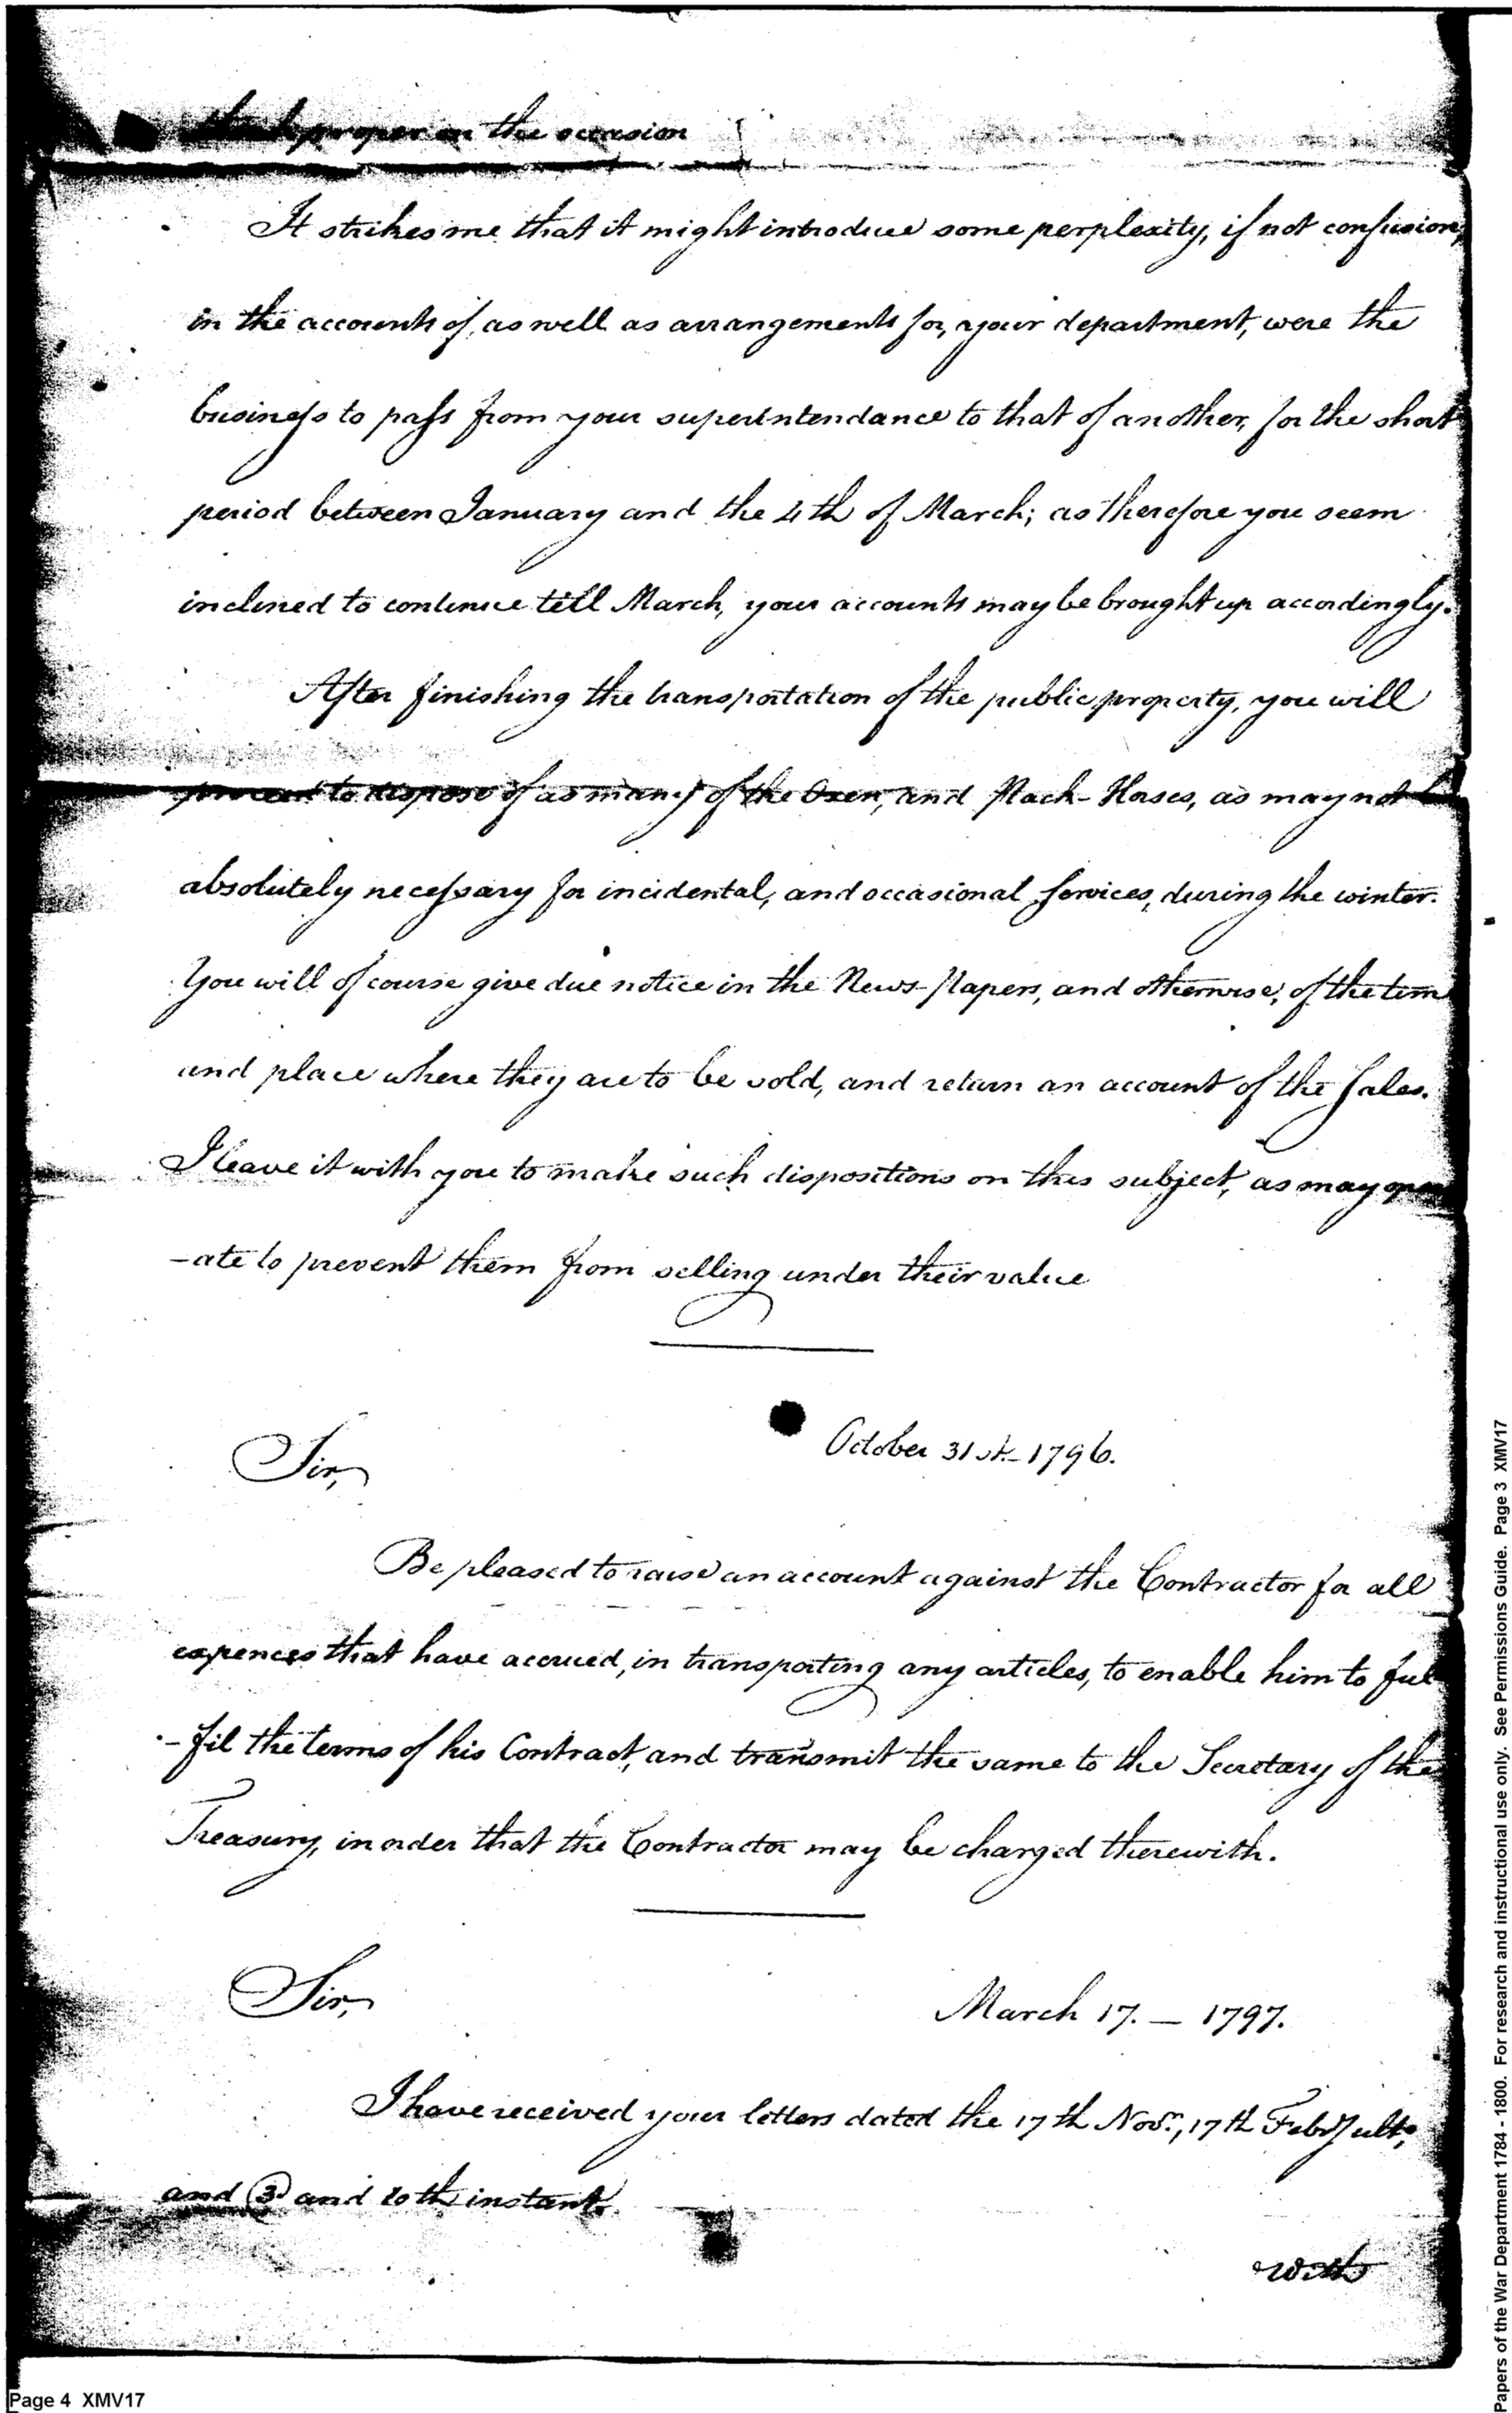 think proper on the occasion
It strikes me that it might introduce some perplexity, if not confusion,
in the accounts of, as well as arrangements for, your department, were the
business to pass from your superintendance to that of another, for the short
period between January and the 4th of March; as therefore you seem
inclined to continue till March, your accounts may be brought up accordingly.
After finishing the transportation of the public property, you will
proceed to dispose of as many of the Oxen, and Pack-Horses, as may not be
absolutely necessary for incidental, and occasional services, during the winter.
You will of course give due notice in the News-Papers, and otherwise, of the time
and place where they are to be sold, and return an account of the sales.
I leave it with you to make such dispositions on this subject, as may oper
-ate to prevent them from selling under their value
October 31st - 1796.
Sir,
Be pleased to raise an account against the Contractor for all
expences that have accrued, in transporting any articles, to enable him to ful
-fil the terms of his Contract, and transmit the same to the Secretary of the
Treasury, in order that the Contractor may be charged therewith.
Sir,
March 17. — 1797.
I have received your letters dated the 17th Novr., 17th Feby ulto,
and 3d and 10th instant.
with
Page 4 XMV17
Papers of the War Department 1784 - 1800. For research and instructional use only. See Permissions Guide. Page 3 XMV17